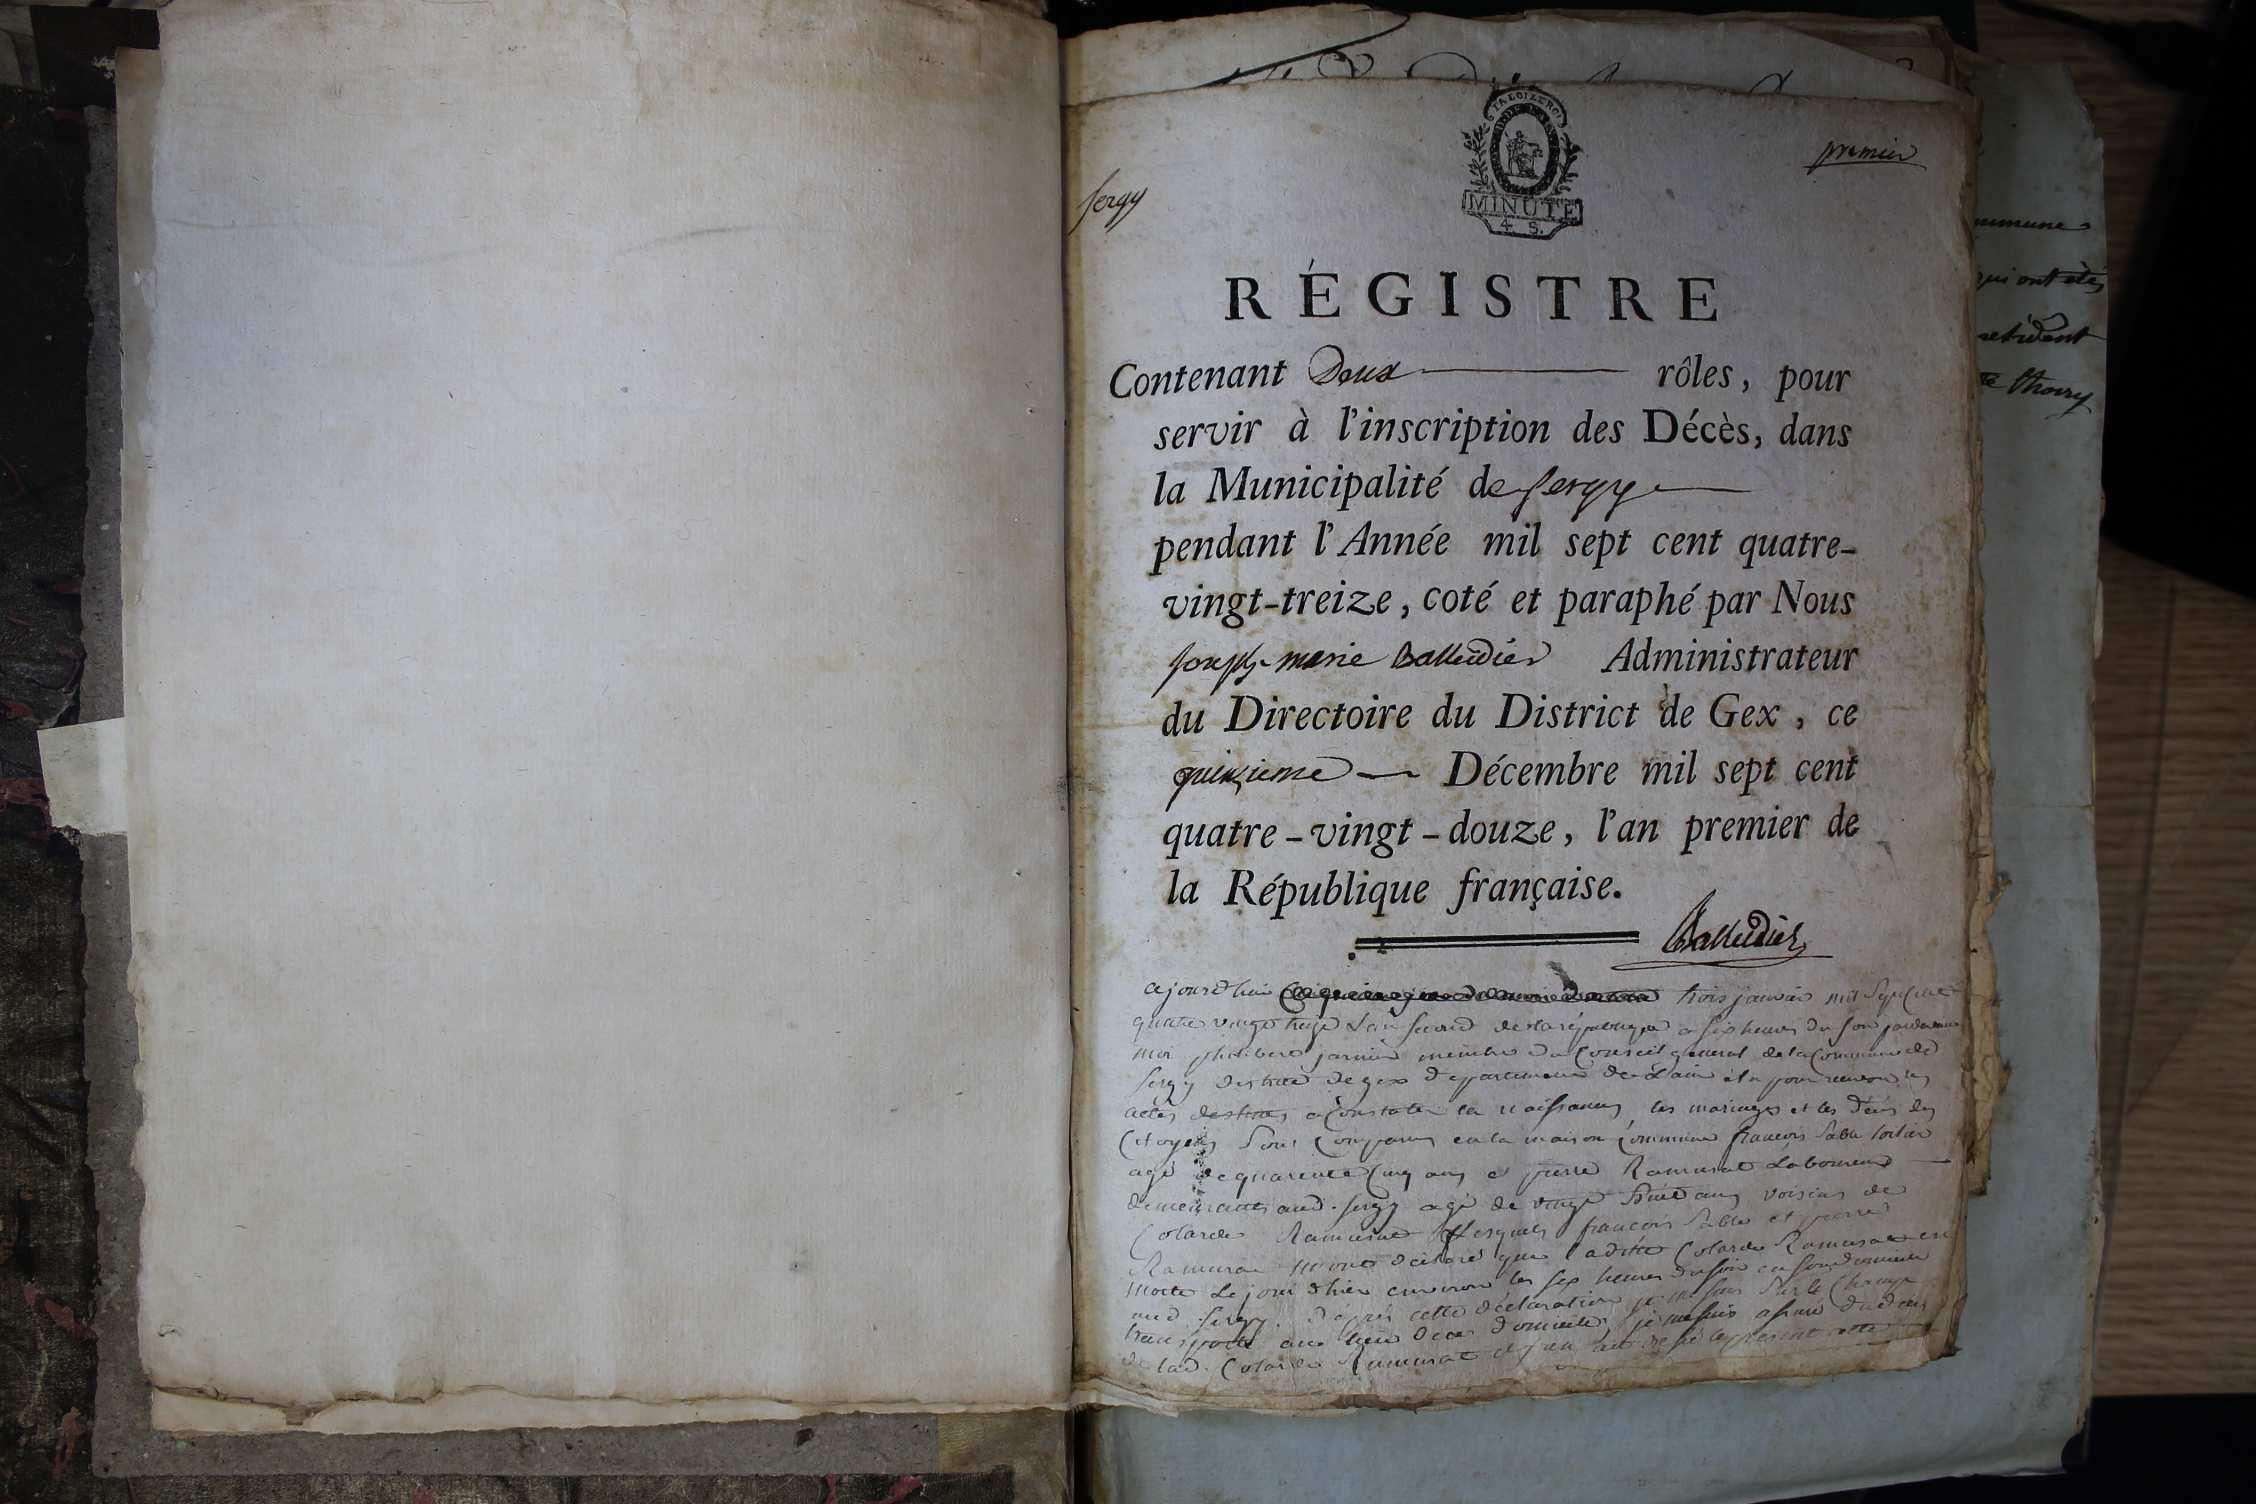 premier
Sergy
LA LOI LE ROI
MINUTE
4 S.
RÉGISTRE
Contenant Deux rôles, pour
servir à l'inscription des Décès, dans
la Municipalité de Sergy
pendant l'Année mil sept cent quatre-
vingt-treize, coté et paraphé par Nous
Joseph-marie Balleidier Administrateur
du Directoire du District de Gex, ce
quinzieme Décembre mil sept cent
quatre-vingt-douze, l'an premier de
la République française.
Balleidier
cejourdhui trois janvier mil sept cent
quatre vingt treize l'an second de la république a six heures du soir pardevant
moi philibert membre du Conseil general de la Commune de
Sergy district de gex departement de Lain elu pour recevoir les
actes destines a Constater la naissances, les mariages et les déces des
Citoyens Sont Comparus en la maison Commune francois
agé de quarente Cinq ans et pierre Ramusat Laboureur
demeurants aud. Sergy agé de vingt huit ans voisins de
Colarde Ramusat lesquels francois et pierre
Ramusat mont déclaré que laditte Colarde Ramusat est
morte Le jour dhier environ les six heures du soir en son domicile
aud. Sergy. d'après cette déclaration je me suis sur le Champ
transporté au lieu de ce domicile, je me suis assuré du déces
de lad. Colarde Ramusat et j'en ai le present acte
ommune
qui ont étés
Thoiry